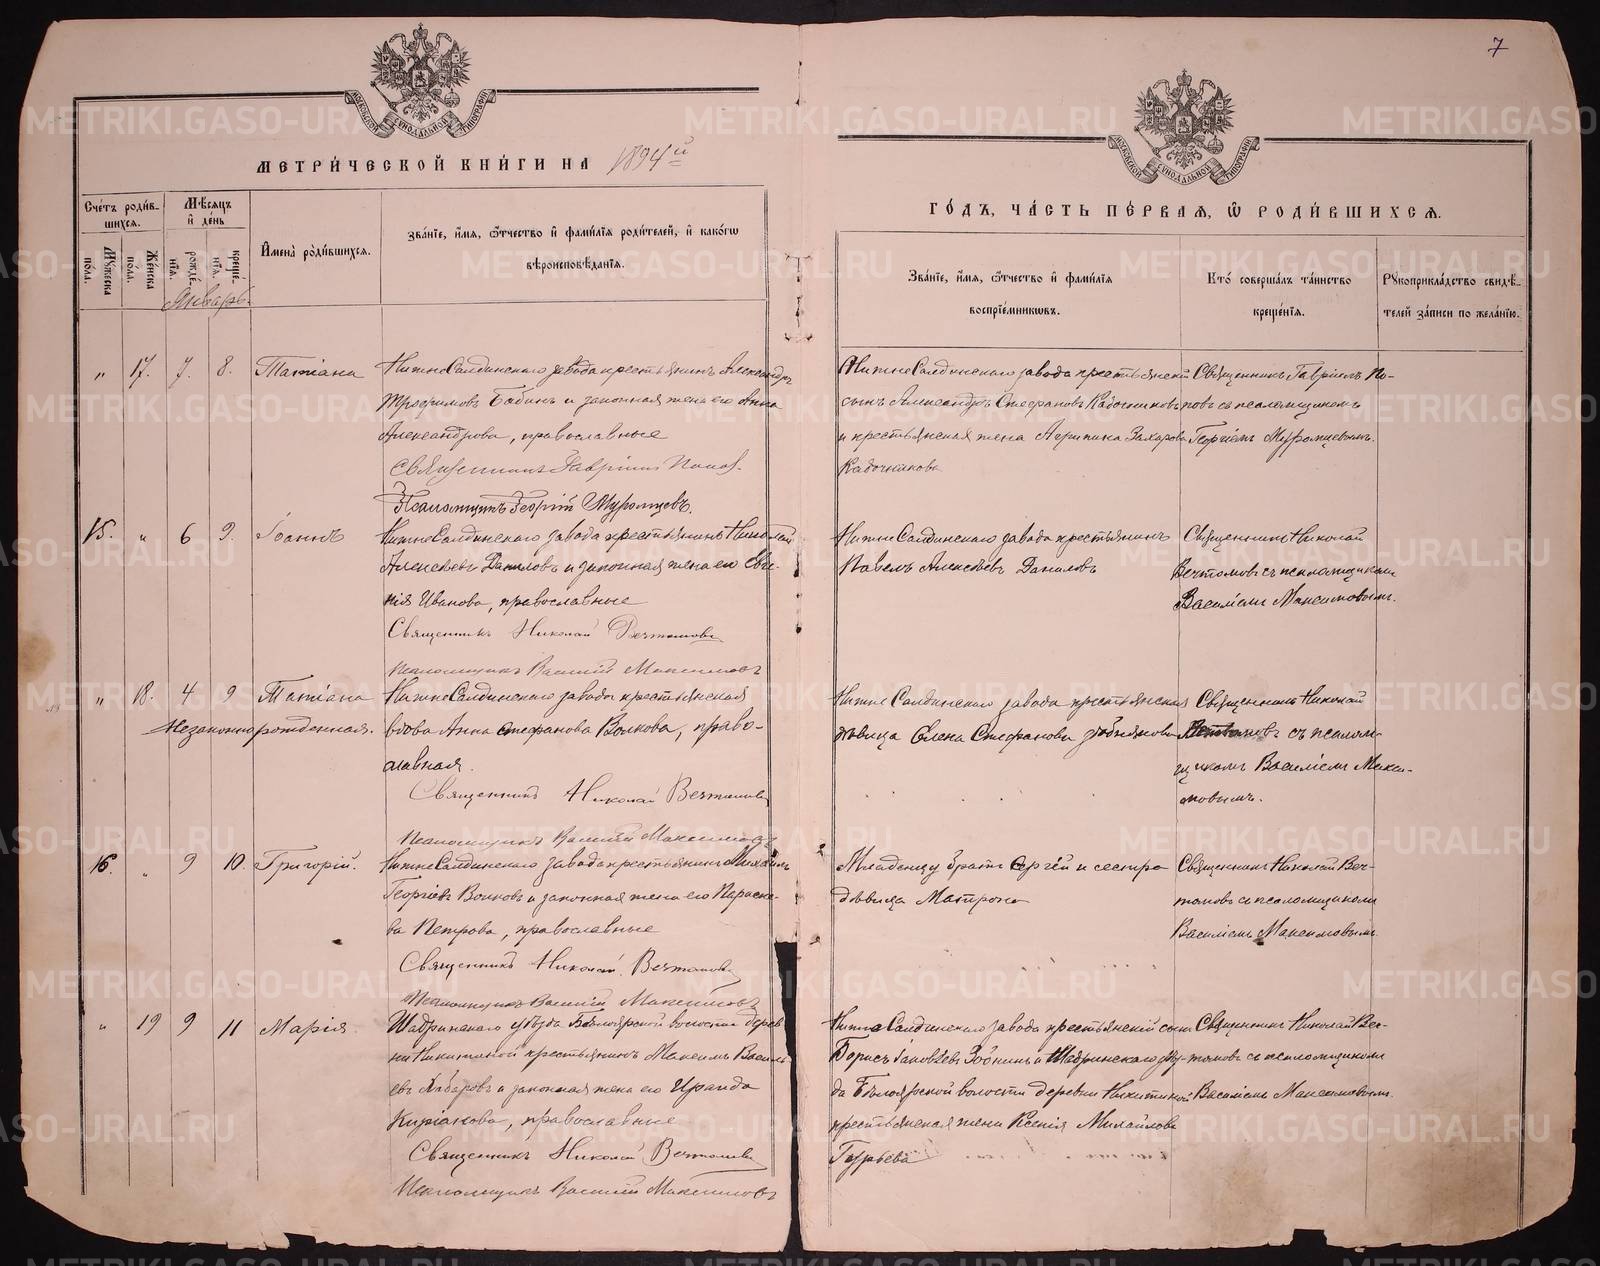 7
МЕТРИ́ЧЕСКОЙ КНИ́ГИ НА 1894й
ГО́ДЪ, ЧА́СТЬ ПЕ́РВАЯ, Ѡ РОДИ́ВШИХСЯ.
Сче́тъ роди́в-
шихся.
Мꙋжеска по́ла.
Же́нска по́ла.
Мѣ́сяцъ и҆ де́нь
рожде́нїя.
креще́нїя.
И҆мена̀ роди́вшихся.
Зва́нїе, и҆́мя, ѻ҆́тчество и҆ фами́лїя роди́телей, и҆ како́гѡ
вѣроисповѣ́данїя.
Зва́нїе, и҆́мя, ѻ҆́тчество и҆ фами́лїя
воспрїе́мникѡвъ.
Кто́ соверша́лъ та́инство
креще́нїя.
Рꙋкоприкла́дство свидѣ́-
телей за́писи по жела́нїю.
Январь.
" 17. 7. 8. Татіана
НижнеСалдинскаго завода крестьянинъ Александръ
Трофимовъ Бабинъ и законная жена его Анна
Александрова, православные
Священникъ Гавріилъ Поповъ.
Псаломщикъ Георгій Муромцевъ.
НижнеСалдинскаго завода крестьянскій
сынъ Александръ Стефановъ Кадочниковъ
и крестьянская жена Агрипина Захарова
Кадочникова
Священникъ Гавріилъ По-
повъ съ псаломщикомъ
Георгіемъ Муромцевымъ.
15. " 6 9. Іоаннъ
НижнеСалдинскаго завода крестьянинъ Николай
Алексѣевъ Даниловъ и законная жена его Евге-
нія Иванова, православные
Священникъ Николай Вечтомовъ
Псаломщикъ Василій Максимовъ
НижнеСалдинскаго завода крестьянинъ
Павелъ Алексѣевъ Даниловъ
Священникъ Николай
Вечтомовъ съ псаломщикомъ
Василіемъ Максимовымъ.
" 18. 4 9 Татіана
Незаконнорожденная.
НижнеСалдинскаго завода крестьянская
вдова Анна Стефанова Волкова, право-
славная.
Священникъ Николай Вечтомовъ
Псаломщикъ Василій Максимовъ
НижнеСалдинскаго завода крестьянская
дѣвица Елена Стефанова
Священникъ Николай
съ псалом-
щикомъ Василіемъ Макси-
мовымъ.
16. " 9 10. Григорій.
НижнеСалдинскаго завода крестьянинъ Михаилъ
Георгіевъ Волковъ и законная жена его Параске-
ва Петрова, православные
Священникъ Николай Вечтомовъ
Псаломщикъ Василій Максимовъ
Младенцу братъ Сергѣй и сестра
дѣвица Матрона
Священникъ Николай Веч-
томовъ съ псаломщикомъ
Василіемъ Максимовымъ
" 19 9 11 Марія
Шадринскаго уѣзда Бѣлоярской волости дерев-
ни Никитиной крестьянинъ Максимъ Василь-
евъ и законная жена его Ираида
Киріанова, православные
Священникъ Николай Вечтомовъ
Псаломщикъ Василій Максимовъ
НижнеСалдинскаго завода крестьянскій сынъ
Борисъ Іаковлевъ Зобнинъ и Шадринскаго уѣз-
да Бѣлоярской волости деревни Никитиной
крестьянская жена Ксенія Михайлова
Гурьева
Священникъ Николай Веч-
томовъ съ псаломщикомъ
Василіемъ Максимовымъ.
METRIKI.GASO-URAL.RU